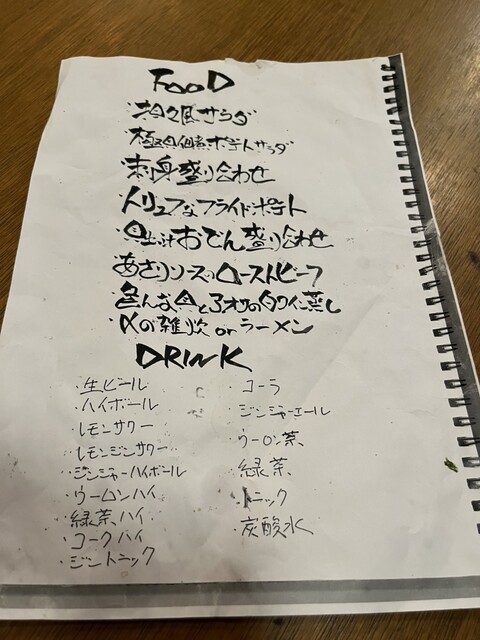 FOOD
・和風サラダ
佃煮ポテトサラダ
刺身盛り合わせ
トリュフなフライドポテト
おでん盛り合わせ
あさりソースのローストビーフ
色んな貝とアオサの白ワイン蒸し
〆の雑炊 or ラーメン
DRINK
・生ビール
・ハイボール
・レモンサワー
・レモンジンサワー
・ジンジャーハイボール
・ウーロンハイ
・緑茶ハイ
・コークハイ
・ジントニック
・コーラ
・ジンジャーエール
・ウーロン茶
・緑茶
・トニック
・炭酸水